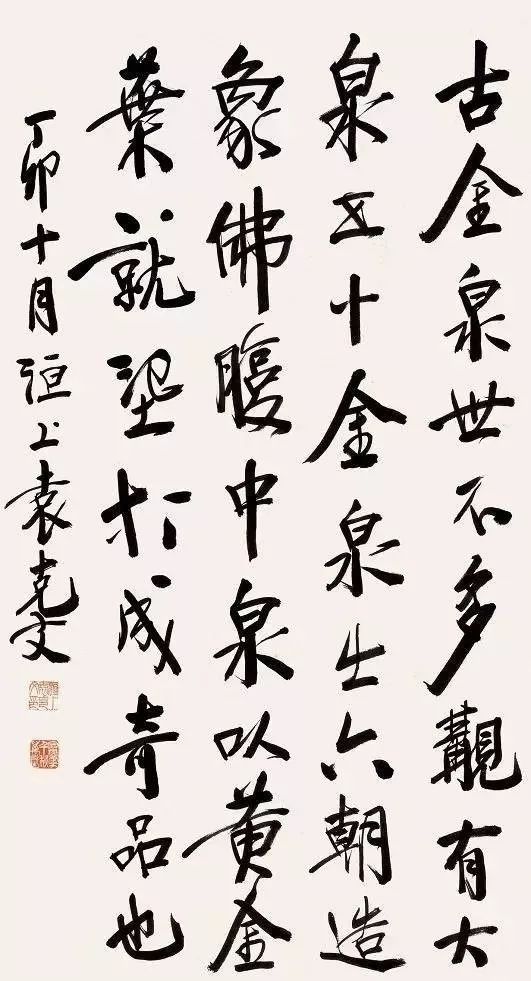 古金泉世不多覯有大
泉五十金泉出六朝造
象佛腹中泉以黄金
葉就型打成奇品也
丁卯十月洹上袁克文